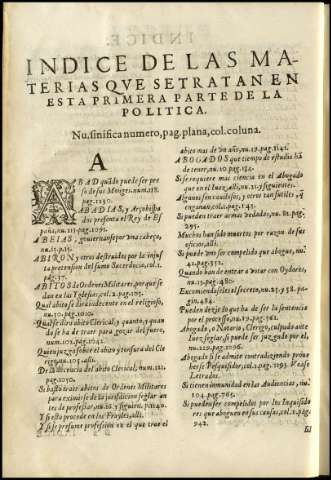 INDICE DE LAS MA-
TERIAS QVE SE TRATAN EN
ESTA PRIMERA PARTE DE LA
POLITICA.
Nu. sinifica numero, pag. plana, col. coluna.
A
ABAD quãdo puede ser pre
so de sus Monjes. num. 118.
pag. 1130.
ABADIAS, y Arçobispa
dos presenta el Rey de Es
paña, nu. 211. pag. 1091.
ABEIAS, gouiernanse por vna cabeça,
nu.
ABIRON y otros destruidos por la injus
ta pretension del sumo Sacerdocio, col. 1
pag. 17.
ABITOS de Ordenes Militares, por que se
dan en las Iglesias, col. 2. pag. 105.
Que abito se dira indecente en el religioso,
nu. 70. pag. 1010.
Qual se dira abito Clerical, y quanto, y quan
do se ha de traer para gozar del fuero,
num. 102. pag. 1042.
Quien juzga sobre el abito y tonsura del Cle
rigo, nu. 105. allí.
De la decencia del abito Clerical, num. 121.
pag. 1050.
Si basta traer abitos de Ordenes Militares
para eximirse de la jurisdicion seglar an
tes de professar, nu. 16. y siguiẽt. p. 1140.
Y si esto procede en los Frayles, allí.
Y si se presume profession en el que trae el
abito mas de vn año, nu. 19. pag. 1141.
ABOGADOS que tiempo de estudio hã
de tener, nu. 10. pag. 152.
Si se requiere mas ciencia en el Abogado
que en el Iuez, allí, nu. 11. y siguientes.
Algunos son caudosos, y otros tan sutiles, y
ignorantes, col. 1. pag. 145.
Si pueden traer armas vedadas, nu. 81. pag.
295.
Muchos han sido muertos por razon de sus
oficios, allí.
Si puede vno ser compelido que abogue, nu.
14. pag. 352.
Quando han de entrar a votar con Oydores,
nu. 15. pag. 480.
Encomiendaseles el secreto, nu. 27. y 58. pa
gin. 484.
Pueden dezir lo que ha de ser la sentencia
por el processo, nu. 19. pag. 761.
Abogado, o Notario, Clerigo, culpado ante
Iuez seglar, si puede ser juzgado por el,
nu. 119. pag. 1096.
Abogado si se admite contradiziendo prime
ro el Pesquisidor, col. 2. pag. 1193. Vease
Letrados.
Si tienen inmunidad en las Audiencias, nu.
104. pag. 765.
Si pueden ser compelidos por los Inquisido
res que aboguen en sus causas, col. 1. pag.
942.